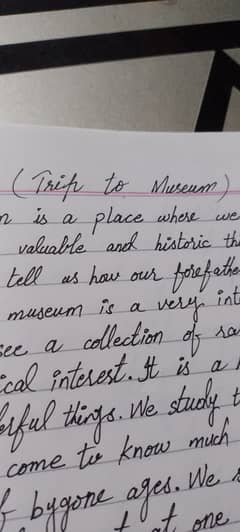 (Trip to Museum)
is a place where we
valuable and historic
tell us how our
museum is a very
see a collection of
interest. It is a
things. We study
come to know much
bygone ages. We
one